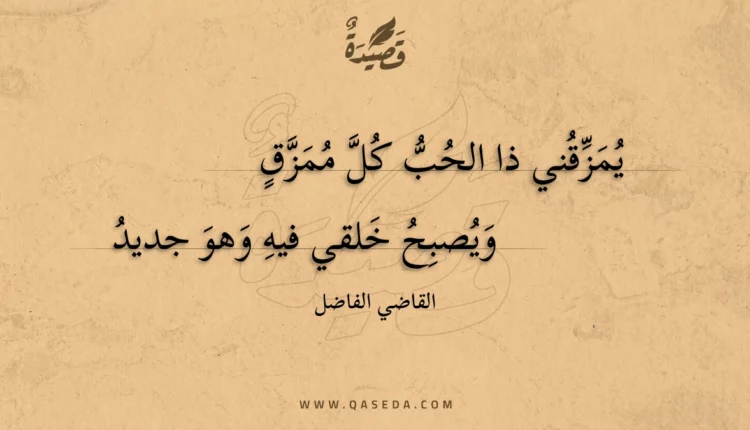 قَصِيدَةٌ
يُمَزِّقُني ذا الحُبُّ كُلَّ مُمَزَّقٍ
وَيُصبِحُ خَلقي فيهِ وَهوَ جديدُ
القاضي الفاضل
WWW.QASEDA.COM